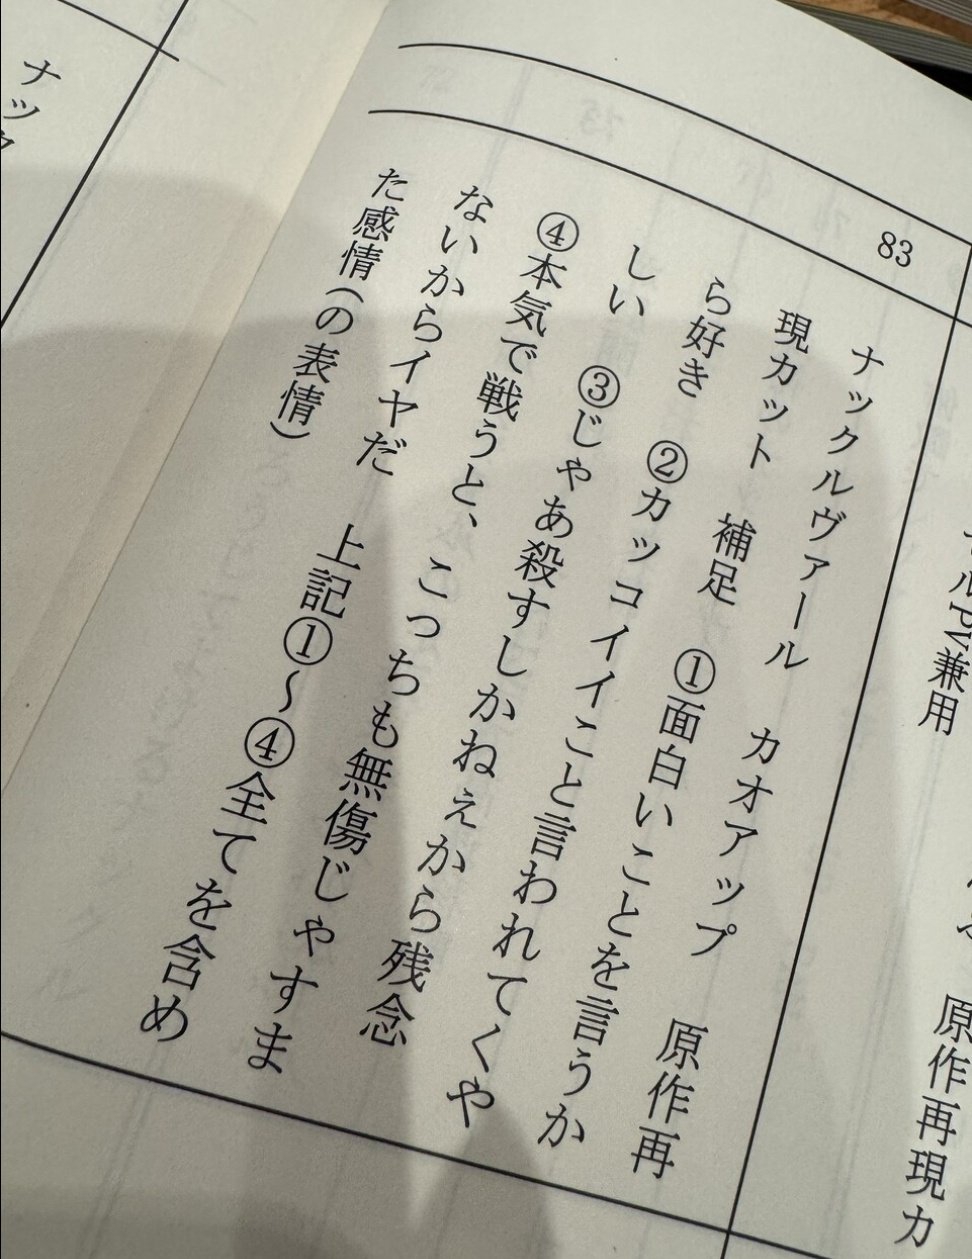 PV兼用
原作再現カ
83
ナックルヴァール カオアップ 原作再
現カット 補足 ①面白いことを言うか
ら好き ②カッコイイこと言われてくや
しい ③じゃあ殺すしかねぇから残念
④本気で戦うと、こっちも無傷じゃすま
ないからイヤだ 上記①〜④全てを含め
た感情(の表情)
ナック